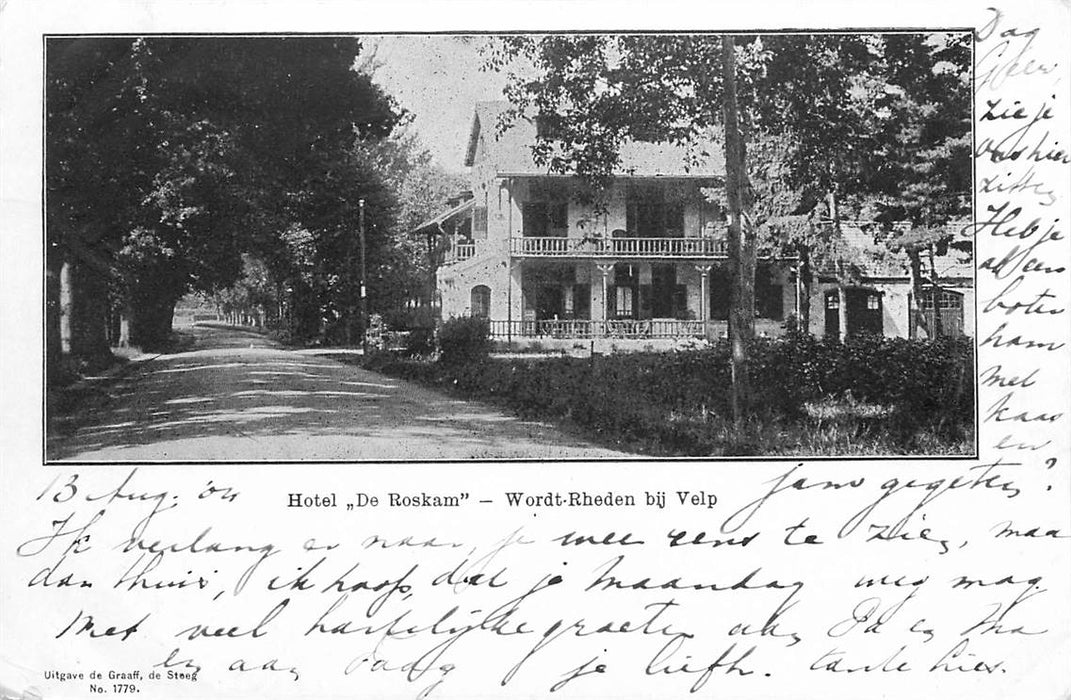 Dag
Geer,
zie je
ons hier
zitten
Heb je
al een
boter
ham
met
kaas
en
jam gegeten?
13 Aug. '04
Hotel „De Roskam” – Wordt-Rheden bij Velp
Ik verlang er naar, je weer eens te zien, maar
dan thuis, ik hoop, dat je Maandag weg mag.
Met veel hartelijke groeten aan Pa en Ma
en aan je liefh. tante
Uitgave de Graaff, de Steeg
No. 1779.